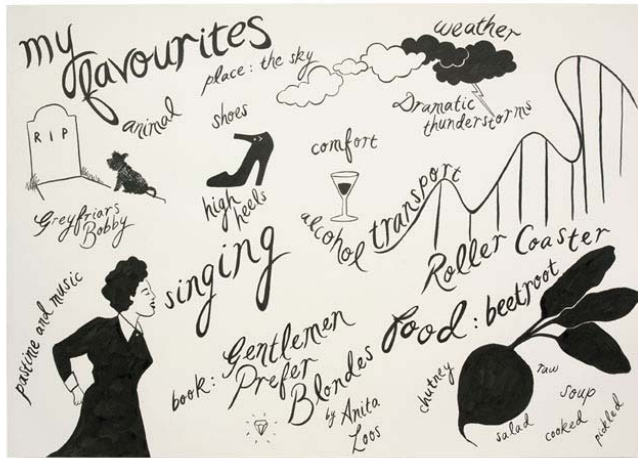 my
favourites
place: the sky
weather
Dramatic
thunderstorms
RIP
animal
Greyfriars
Bobby
shoes
high
heels
comfort
alcohol
transport
Roller Coaster
pastime and music
singing
book: Gentlemen
Prefer
Blondes
by Anita
Loos
Food: beetroot
chutney
raw
soup
salad
cooked
pickled